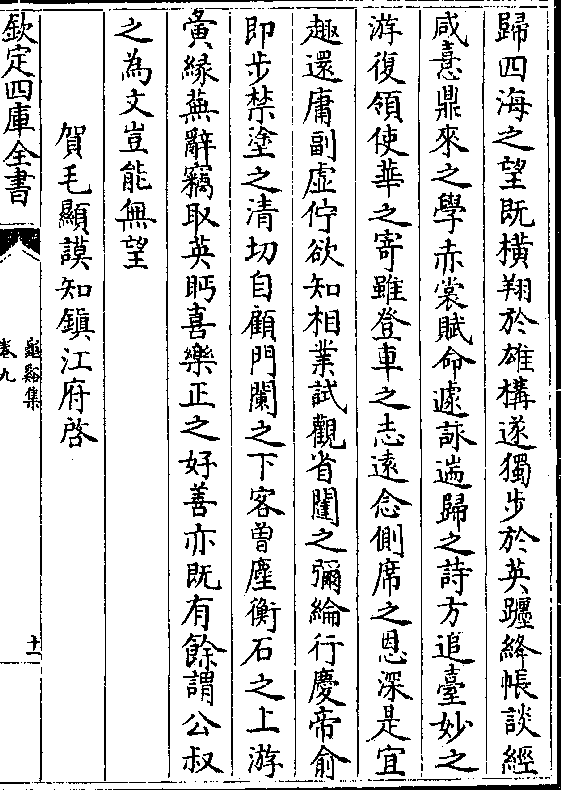 歸四海之望既橫翔於雄構遂獨歩於英躔絳帳談經
咸憙鼎來之學赤裳賦命遽詠遄歸之詩方追臺妙之
游復領使華之寄雖登車之志逺念側席之恩深是宜
趣還庸副虛佇欲知相業試觀省闥之彌綸行慶帝俞
即步禁塗之清切自顧門闌之下客曽塵衡石之上游
夤縁蕪辭竊取英眄喜樂正之好善亦既有餘謂公叔
之為文豈能無望
賀毛顯謨知鎮江府啓
欽定四庫全書
龜谿集
卷九
十一